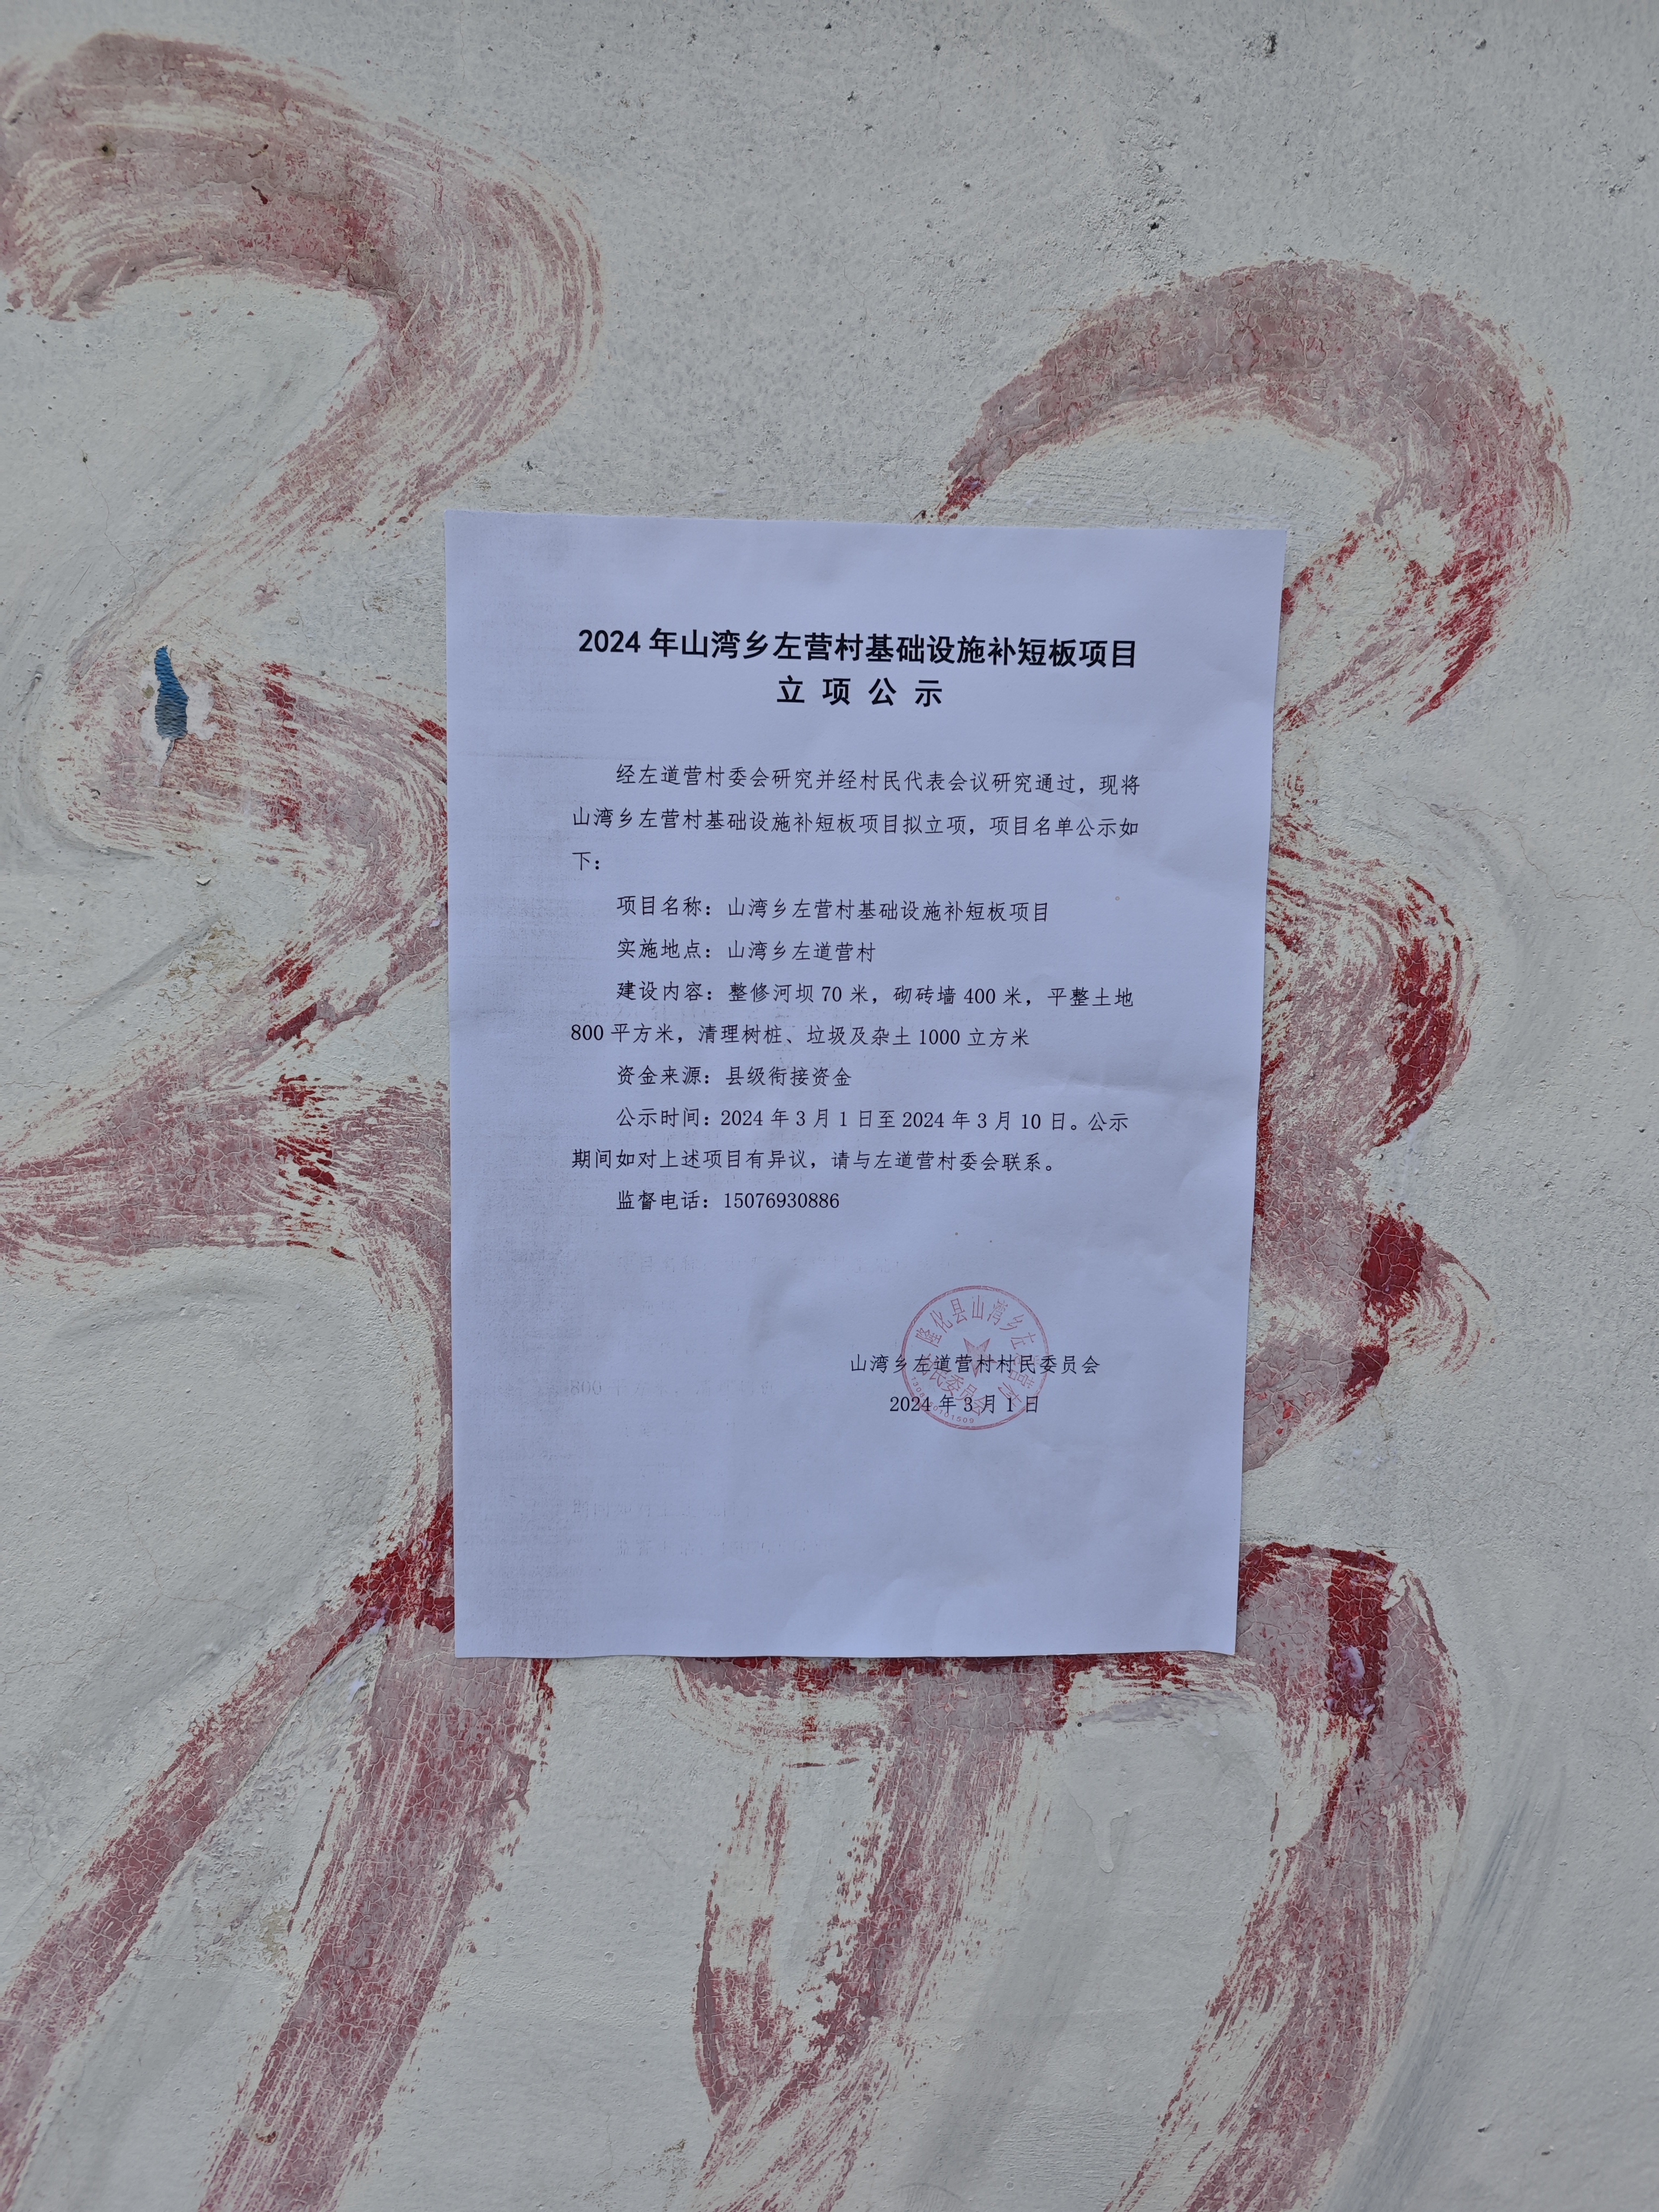 2024年山湾乡左营村基础设施补短板项目
立项公示
经左道营村委会研究并经村民代表会议研究通过，现将
山湾乡左营村基础设施补短板项目拟立项，项目名单公示如
下：
项目名称：山湾乡左营村基础设施补短板项目
实施地点：山湾乡左道营村
建设内容：整修河坝70米，砌砖墙400米，平整土地
800平方米，清理树桩、垃圾及杂土1000立方米
资金来源：县级衔接资金
公示时间：2024年3月1日至2024年3月10日。公示
期间如对上述项目有异议，请与左道营村委会联系。
监督电话：15076930886
隆化县山湾乡左营村
民委员会
山湾乡左道营村村民委员会
2024年3月1日